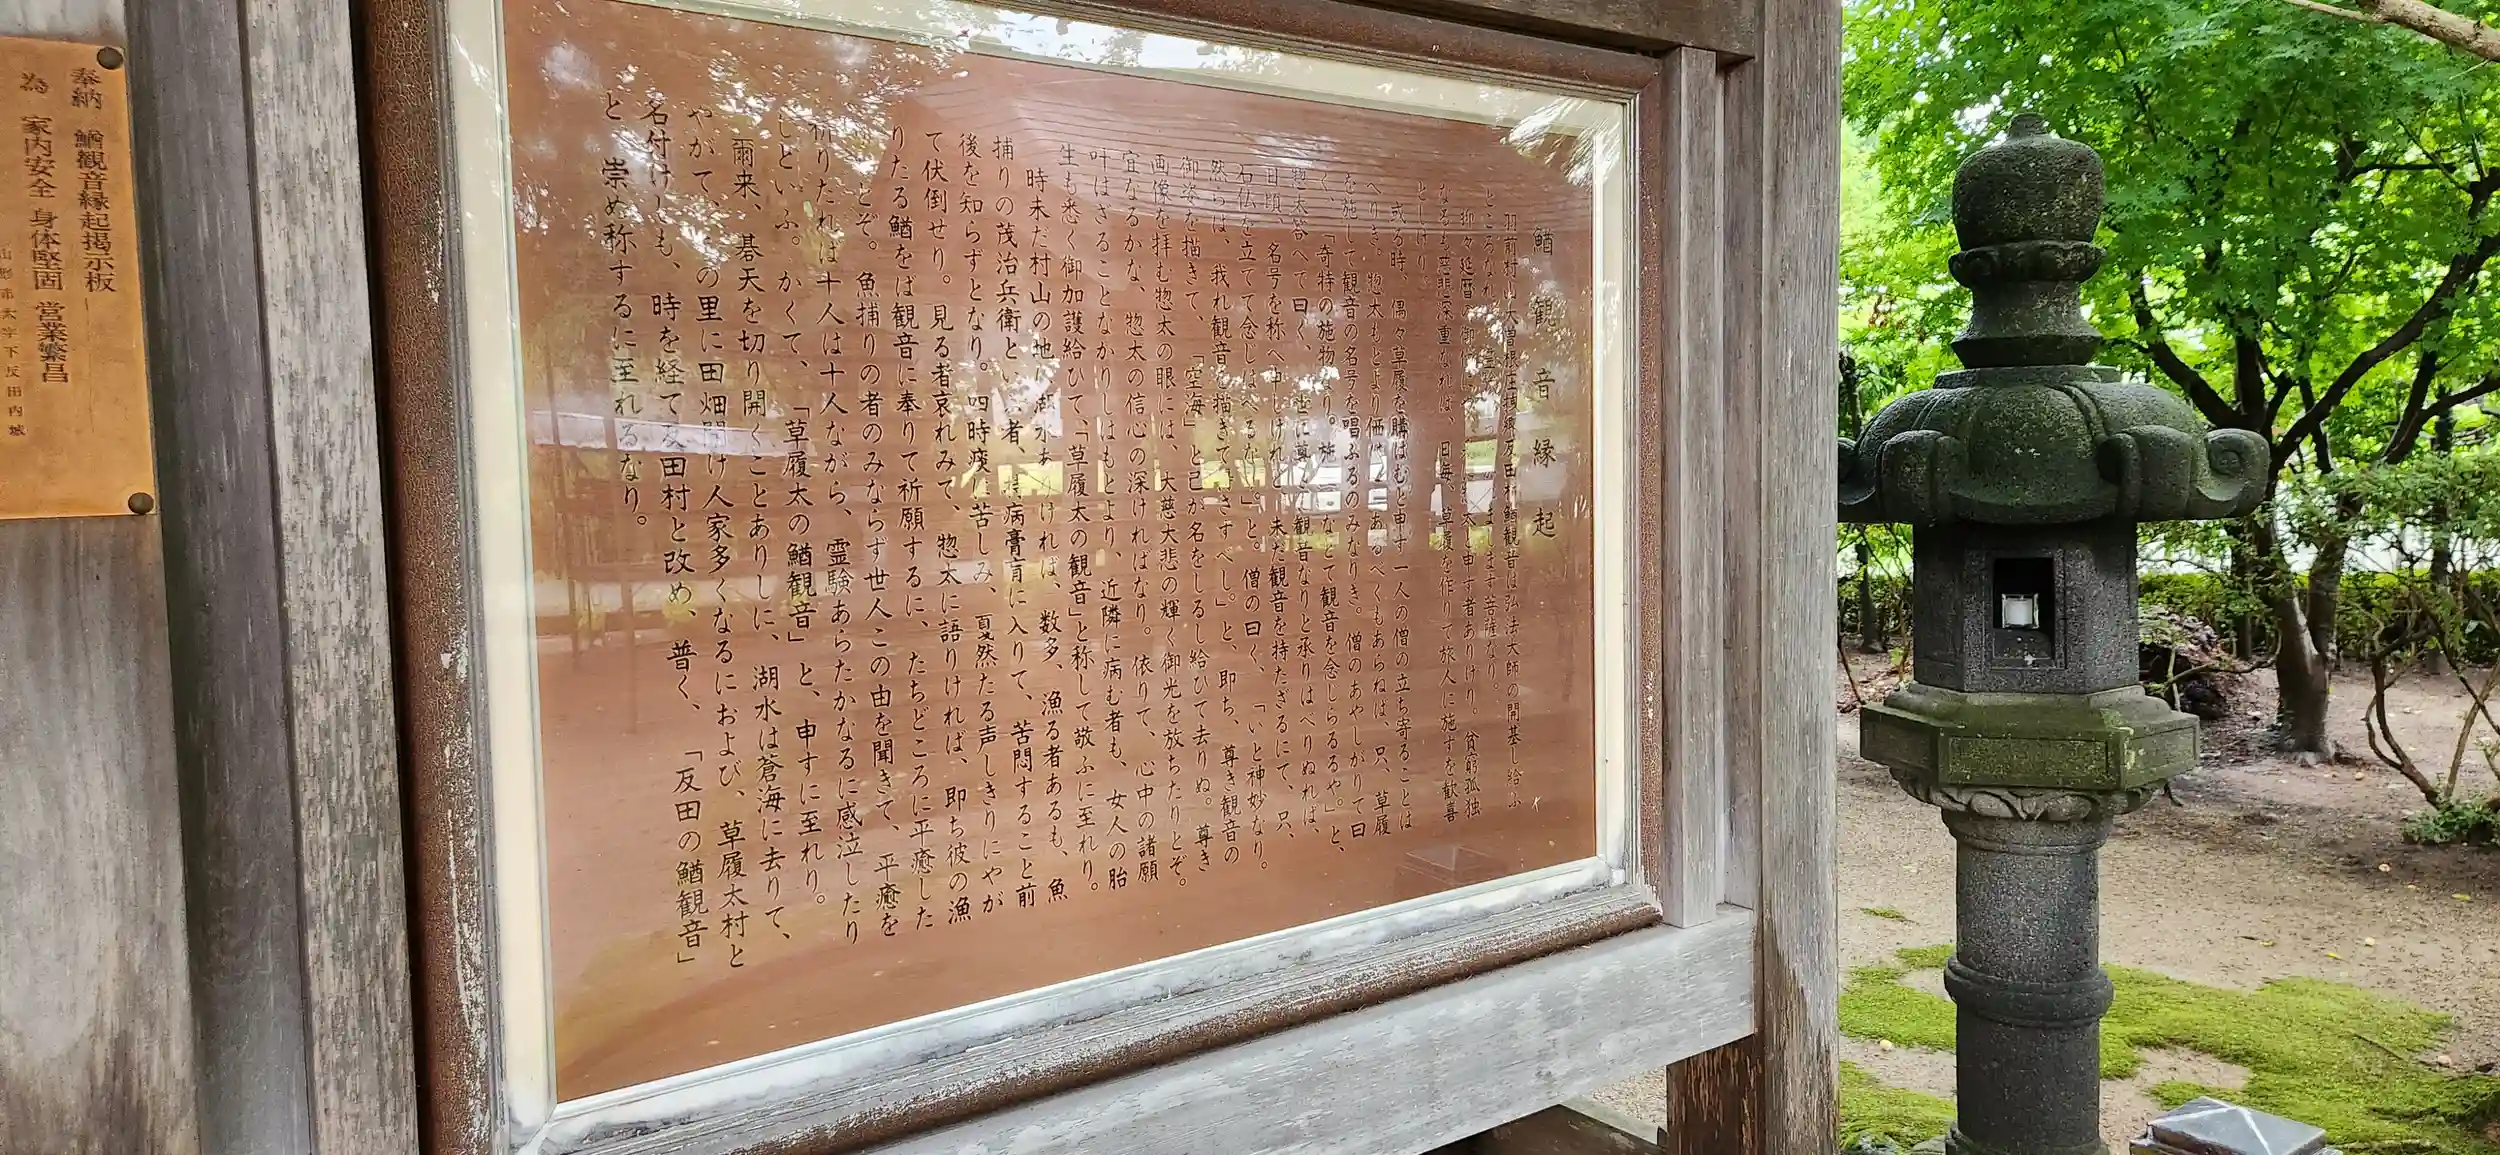 鰌観音縁起
羽前村山大曽根庄 郷反田村鰌観音は弘法大師の開基し給ふ
ところなれ ます菩薩なり。
抑々延暦 御 太 申す者ありけり。貧窮孤独
なるも慈悲深重なれば、日毎、草履を作りて旅人に施すを歓喜
としけり。
或る時、偶々草履を購はむと申す一人の僧の立ち寄ることは
べりき。惣太もとより価は あるべくもあらねば、只、草履
を施して観音の名号を唱ふるのみなりき。僧のあやしがりて曰
く、「奇特の施物なり。施 などて観音を念じらるるや。」と、
惣太答へて曰く、 世に尊 観音なりと承りはべりぬれば、
日頃、名号を称へ申しけれど、未だ観音を持たざるにて、只、
石仏を立てて念じはべるなり。」と。僧の曰く、「いと神妙なり。
然らば、我れ観音を描きて さすべし。」と、即ち、尊き観音の
御姿を描きて、「空海」と己が名をしるし給ひて去りぬ。尊き
画像を拝む惣太の眼には、大慈大悲の輝く御光を放ちたりとぞ。
宜なるかな、惣太の信心の深ければなり。依りて、心中の諸願
叶はざることなかりしはもとより、近隣に病む者も、女人の胎
生も悉く御加護給ひて、「草履太の観音」と称して敬ふに至れり。
時未だ村山の地に湖水あ ければ、数多、漁る者あるも、魚
捕りの茂治兵衛といふ者、 病膏肓に入りて、苦悶すること前
後を知らずとなり。四時痰に苦しみ、戛然たる声しきりにやが
て伏倒せり。見る者哀れみて、惣太に語りければ、即ち彼の漁
りたる鰌をば観音に奉りて祈願するに、たちどころに平癒した
りとぞ。魚捕りの者のみならず世人この由を聞きて、平癒を
祈りたれば十人は十人ながら、霊験あらたかなるに感泣したり
しといふ。かくて、「草履太の鰌観音」と、申すに至れり。
爾来、碁天を切り開くことありしに、湖水は蒼海に去りて、
やがて、この里に田畑開け人家多くなるにおよび、草履太村と
名付けしも、時を経て反田村と改め、普く、「反田の鰌観音」
と崇め称するに至れるなり。
奉納 鰌観音縁起掲示板
為 家内安全 身体堅固 営業繁昌
山形市大字下反田内城